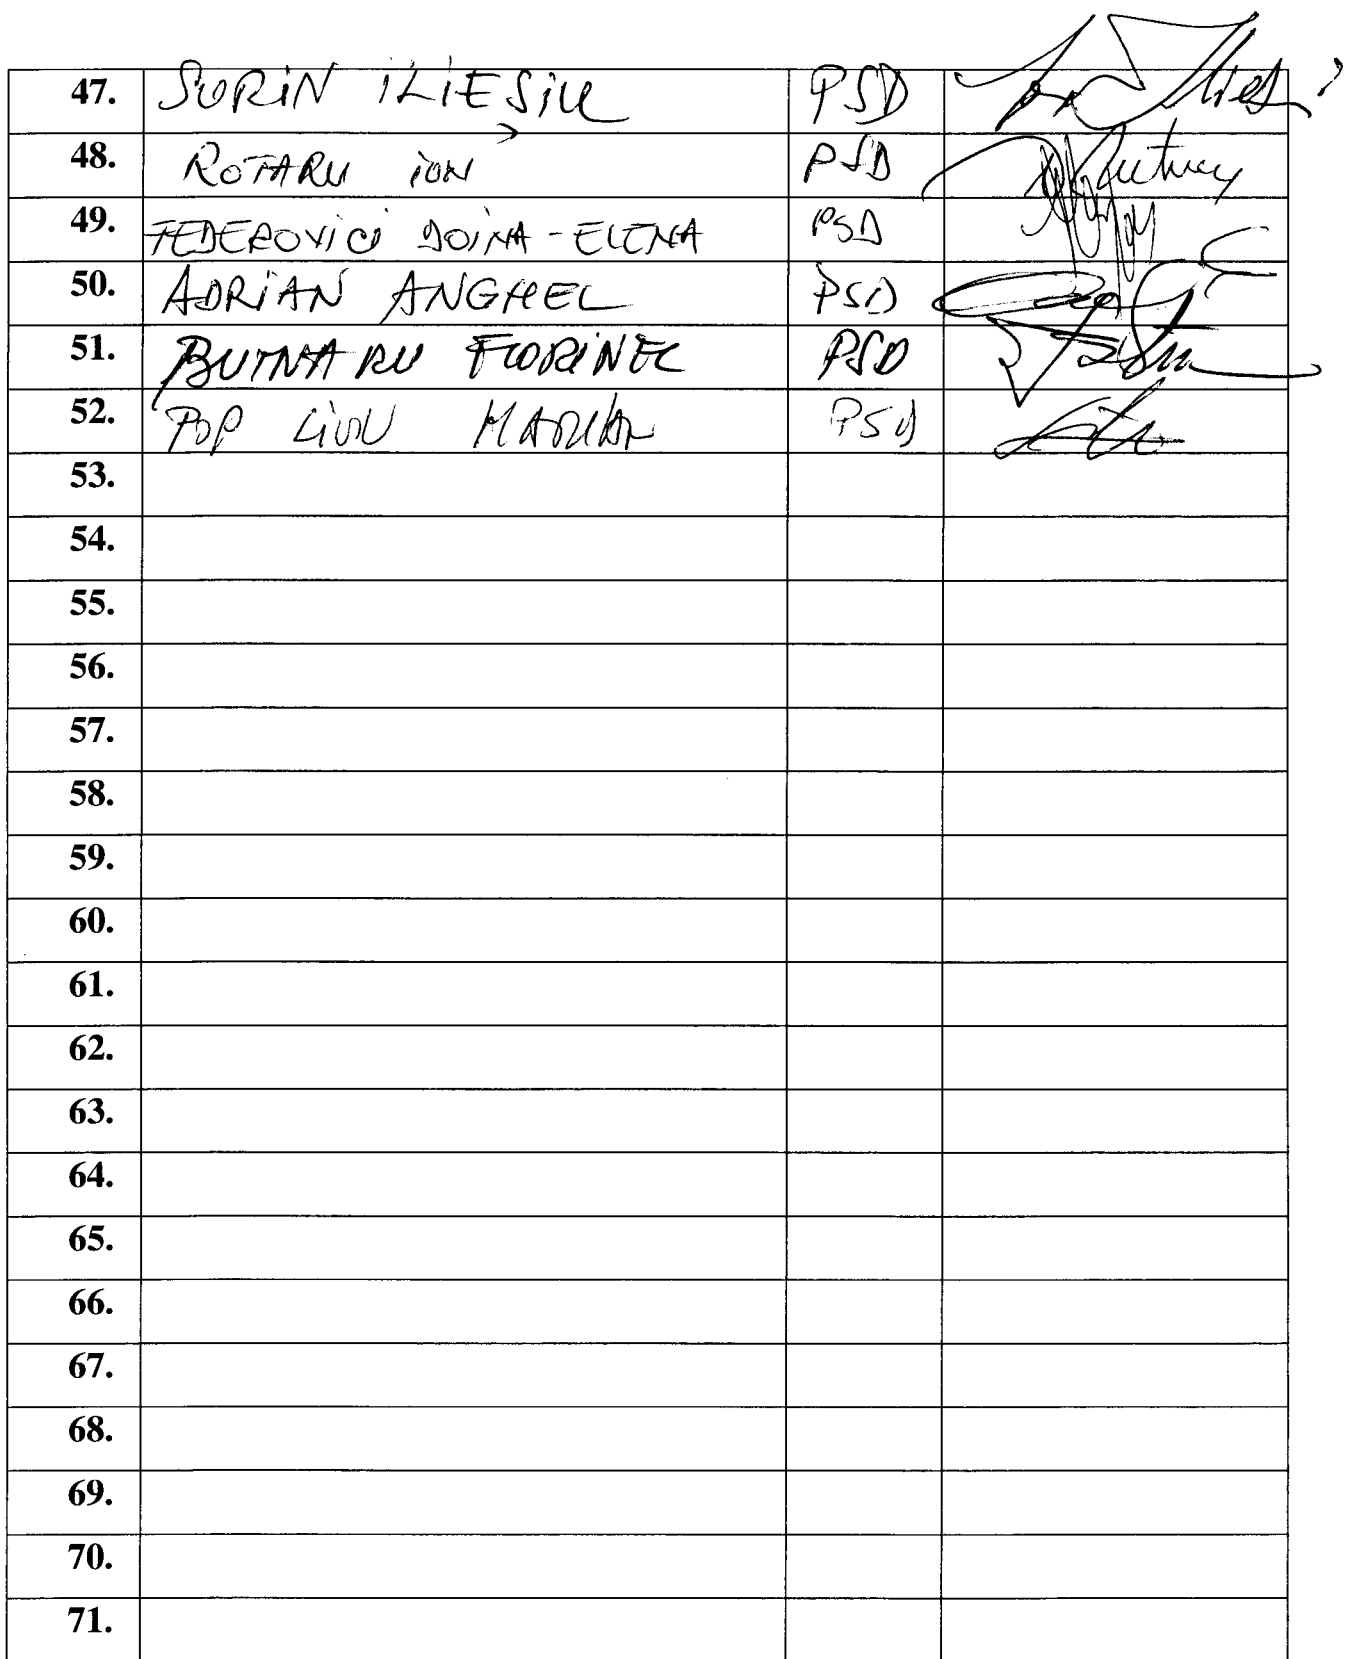 47. SORIN ILIEŞIU PSD
48. ROTARU ION PSD
49. FEDEROVICI DOINA-ELENA PSD
50. ADRIAN ANGHEL PSD
51. BUTNARU FLORINEL PSD
52. POP LIVIU MARIAN PSD
53.
54.
55.
56.
57.
58.
59.
60.
61.
62.
63.
64.
65.
66.
67.
68.
69.
70.
71.